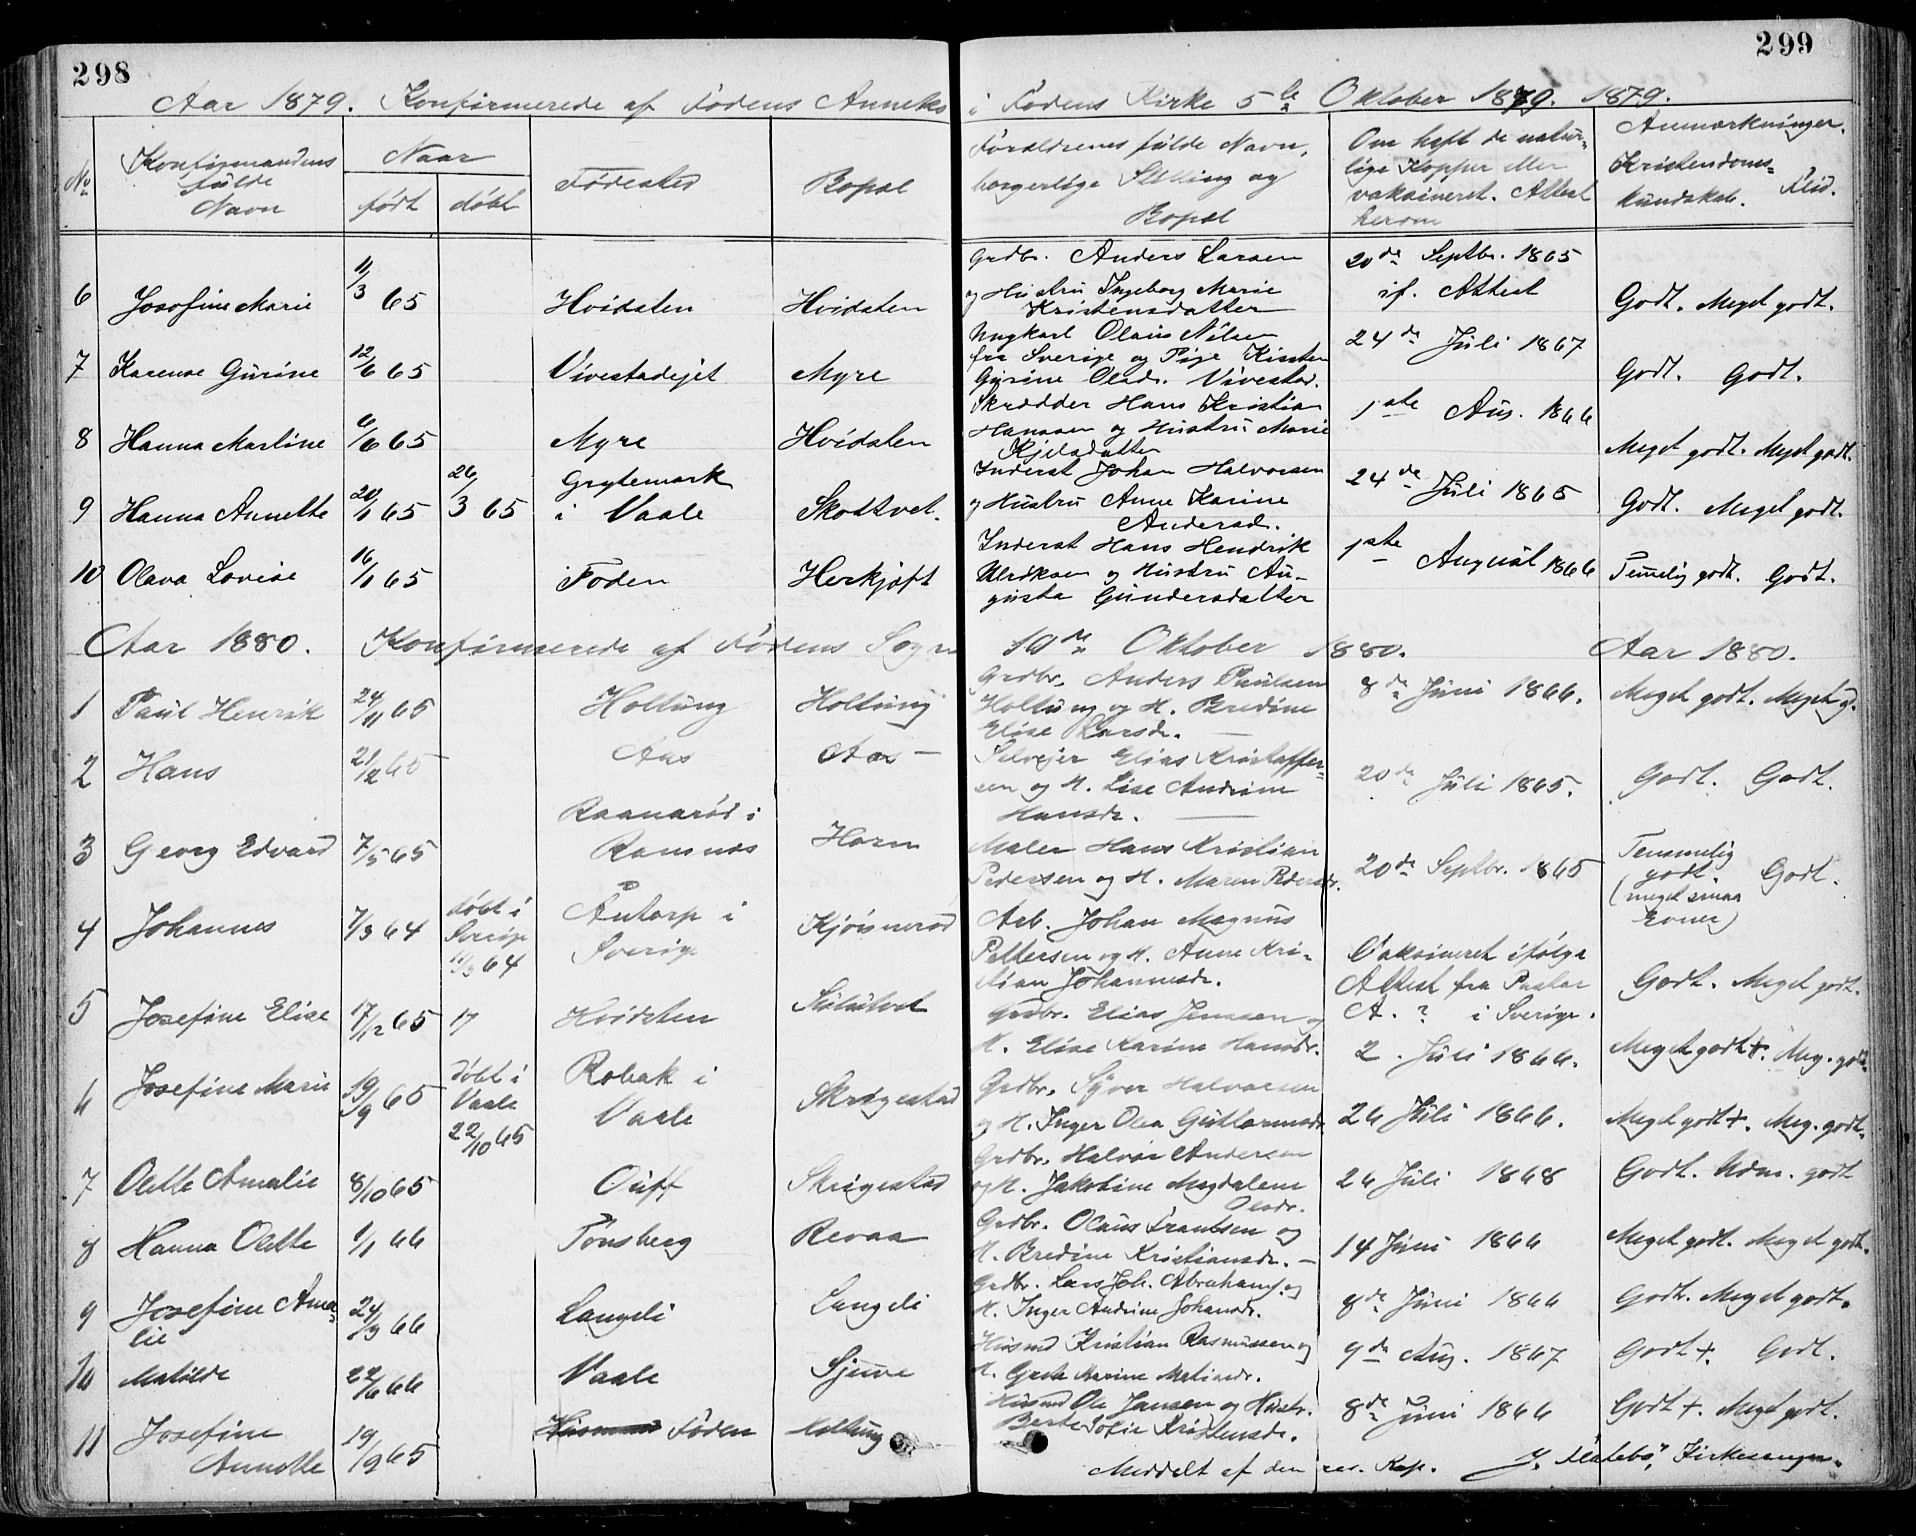 298
299
Aar 1879. Konfirmerede af Fodens Anneks i Fodens Kirke 5te Oktober 1879. 1879.
No
Konfirmandens fulde Navn
Naar
født
døbt
Fødested
Bopæl
Forældrenes fulde Navn, borgerlige Stilling og Bopæl
Om haft de naturlige Kopper eller vaksineret. Attest herom
Anmærkninger.
Kristendomskundskab. Flid.
6 Josefine Marie 11/3 65 Hvidsten Hvidsten Grdbr. Anders Larsen og Hustru Ingeborg Marie Kristensdatter 20de Septbr. 1865 if. Attest Godt. Meget godt.
7 Karense Gurine 12/6 65 Vivestadejet Myre Ungkarl Olaus Nilsen fra Sverige og Pige Kirsten Gurine Olsd. Vivestad. 24de Juli 1867 Godt. Godt.
8 Hanna Martine 6/6 65 Myre Hvidsten Skrædder Hans Kristian Hanssen og Hustru Marie Kjelsdatter 1ste Aug. 1866 Meget godt. Meget godt.
9 Hanna Annette 20/1 65 26/3 65 Grytemark i Vaale Skottvet. Inderst Johan Halvorsen og Hustru Anne Karine Andersd. 24de Juli 1865 Godt. Meget godt.
10 Olava Lovise 16/1 65 Foden Herkjøft Inderst Hans Hendrik Ulriksen og Hustru Augusta Gundersdatter 1ste August 1866 Temelig godt. Godt.
Aar 1880. Konfirmerede af Fodens Sogn 10de Oktober 1880. Aar 1880.
1 Paul Henrik 24/11 65 Holtung Holtung Grdbr. Anders Paulsen Holtung og H. Bredine Elise Larsdr. 8de Juni 1866. Meget godt. Meget g.
2 Hans 21/12 65 Aas Aas Selvejer Elias Kristoffersen og H. Lise Andrine Hansdr. 20de Juli 1865. Godt. Godt.
3 Georg Edvard 7/5 65 Raanarød i Ramnes Horn Maler Hans Kristian Pedersen og H. Maren Pedersdr. 20de Septbr. 1865 Temmelig godt (meget smaa Evner) Godt.
4 Johannes 7/3 64 døbt i Sverige 11/3 64 Antorp i Sverige Kjønnerød Arb. Johan Magnus Pettersen og H. Anne Kristian Johannesdr. Vaksineret ifølge Attest fra Pastor A. ? i Sverige. Godt. Meget godt.
5 Josefine Elise 17/12 65 17 Hvidsten Grdbr. Elias Jenssen og H. Elise Karine Hansdr. 2. Juli 1866. Meget godt+. Meg. godt.
6 Josefine Marie 19/9 65 døbt i Vaale 22/10 65 Robak i Vaale Skrigestad Grdbr. Syver Halvorsen og H. Inger Olea Guttormsdr. 26 Juli 1866. Meget godt+. Meg. godt.
7 Olette Amalie 8/10 65 Ouff Skrigestad Grdbr. Halvor Andersen og H. Jakobine Magdalene Olsdr. 26 Juli 1868 Godt. Udm. godt
8 Hanna Olette 1/1 66 Tønsberg Revaa Grdbr. Olaus Frantsen og H. Bredine Kristiansdr. 14 Juni 1866 Meget godt. Meget godt.
9 Josefine Amalie 24/3 66 Langeli Langeli Grdbr. Lars Joh. Abrahams. og H. Inger Andrine Johansdr. 8de Juni 1866 Godt. Meget godt.
10 Matilde 22/6 66 Vaale Husmd Kristian Rasmussen og H. Grete Marine Matisdr. 9de Aug. 1867 Godt+. Godt.
11 Josefine Annette 19/9 65 Foden Holtung Husmd Ole Jansen og Hustr. Berte Sofie Kristensdr. 8de Juni 1866 Godt+. Meget godt.
Meddelt af den res. Kap. J. Flatebø, Kirkesanger.